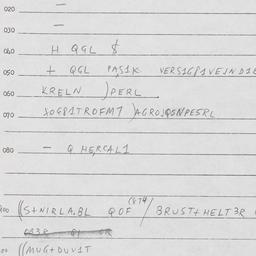 020 —
030 —
040 H QGL $
050 + QGL PAS1K VERS1G81VEJND1E
060 KRELN )PERL
070 XOG81TROFM7 )AGROJQ5NPE5RL
080 - Q HERCAL1
((S+NIRLA,BL QOF / BRUST+HELT3R
((MUG+DUV1T